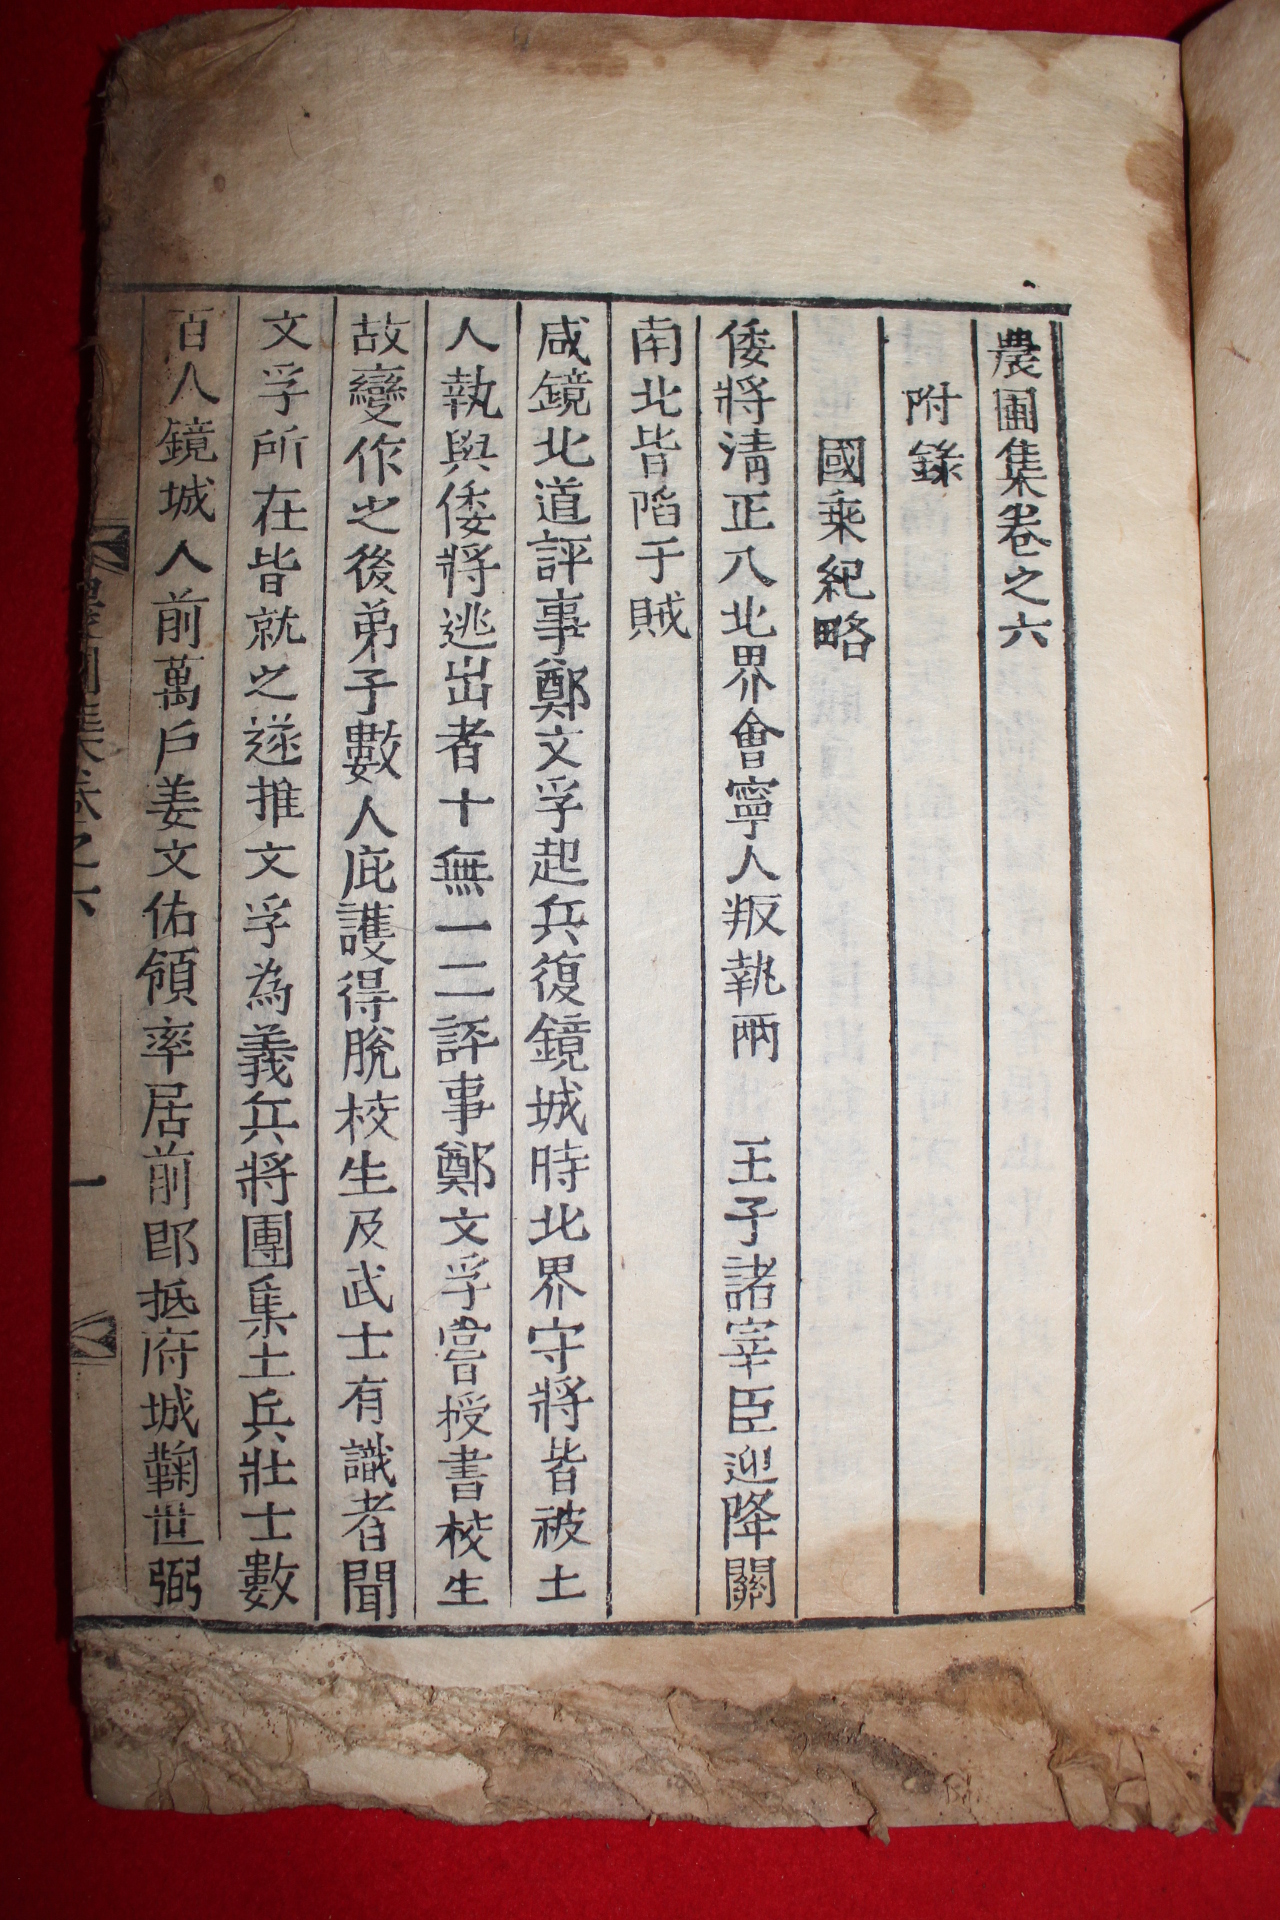 農圃集卷之六
附錄
國乘紀略
倭將淸正入北界會寧人叛執兩 王子諸宰臣迎降關
南北皆陷于賊
咸鏡北道評事鄭文孚起兵復鏡城時北界守將皆被土
人執與倭將逃出者十無一二評事鄭文孚嘗授書校生
故變作之後弟子數人庇護得脫校生及武士有識者聞
文孚所在皆就之遂推文孚為義兵將團集土兵壯士數
百人鏡城人前萬戶姜文佑領率居前郎抵府城鞠世弼
農圃集卷之六
一